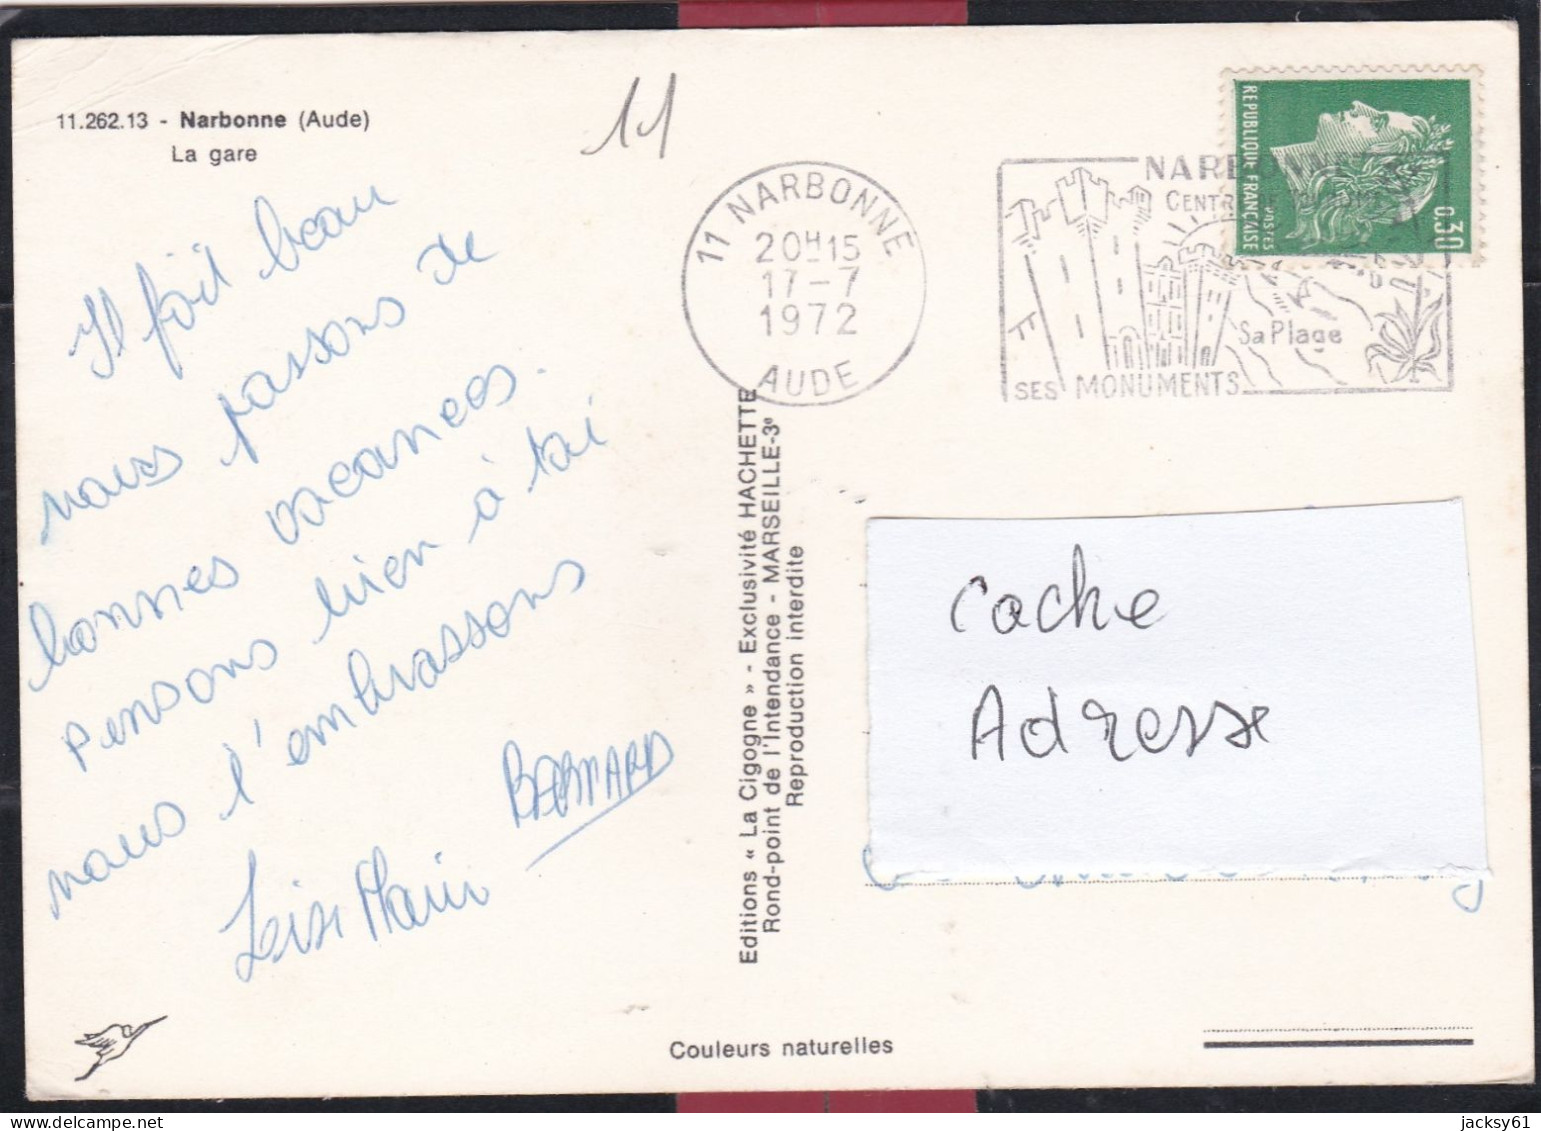 11.262.13 - Narbonne (Aude)
La gare
11
Il fait beau
nous passons de
bonnes vacances.
pensons bien à toi
nous t'embrassons
BERNARD
11 NARBONNE
20H15
17-7
1972
AUDE
NARBONNE
CENTRE DE TOURISME
Sa Plage
SES MONUMENTS
REPUBLIQUE FRANCAISE
POSTES
0,30
Editions « La Cigogne » - Exclusivité HACHETTE
Rond-point de l'Intendance - MARSEILLE-3e
Reproduction interdite
Cache
Adresse
Couleurs naturelles
jacksy61